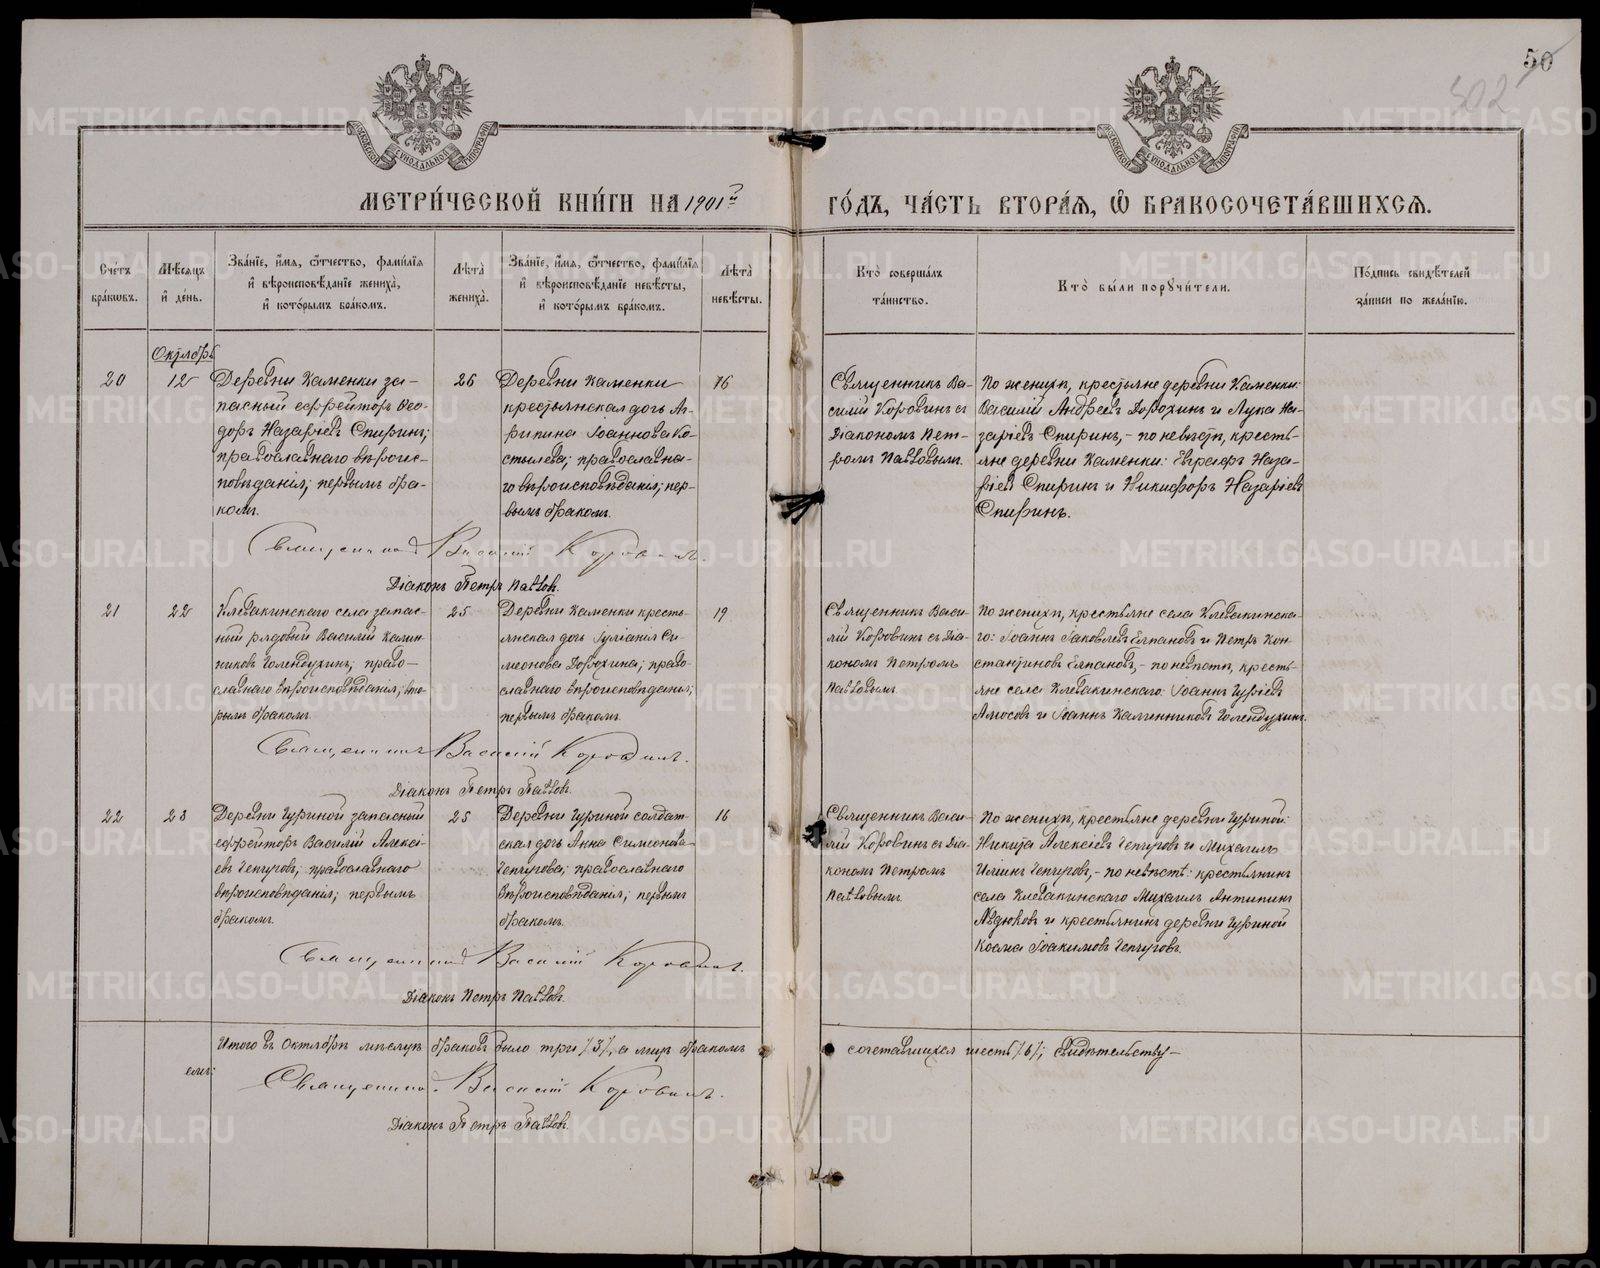 50
502
МОСКОВСКОЙ СУНОДАЛЬНОЙ ТИПОГРАФІИ
МОСКОВСКОЙ СУНОДАЛЬНОЙ ТИПОГРАФІИ
МЕТРИ́ЧЕСКОЙ КНИ́ГИ НА 1901й
ГО́ДЪ, ЧА́СТЬ ВТОРА́Я, Ѡ БРАКОСОЧЕТА́ВШИХСЯ.
Сче́тъ
бра́ковъ.
Мѣ́сяцъ
и̂ де́нь.
Зва́нїе, и́мя, ѻ҆́тчество, фами́лїя
и̂ вѣроисповѣ́данїе жениха̀,
и̂ кото́рымъ бра́комъ.
Лѣ́та̀
жениха̀.
Зва́нїе, и́мя, ѻ҆́тчество, фами́лїя
и̂ вѣроисповѣ́данїе невѣ́сты,
и̂ кото́рымъ бра́комъ.
Лѣ́та̀
невѣ́сты.
Кто̀ соверша́лъ
та́инство.
Кто̀ бы́ли порꙋчи́тели.
По́дпись свидѣ́телей
за́писи по жела́нїю.
Октябрь
20
12
Деревни Каменки за-
пасный ефрейторъ Ѳео-
доръ Назаріевъ Спиринъ;
православнаго вѣроис-
повѣданія; первымъ бра-
комъ.
26
Деревни Каменки
крестьянская дочь Аг-
рипина Іоаннова Ко-
стылева; православна-
го вѣроисповѣданія; пер-
вымъ бракомъ.
16
Священникъ Ва-
силій Коровинъ съ
Діакономъ Пет-
ромъ Павловымъ.
По женихѣ, крестьяне деревни Каменки:
Василій Андреевъ Дорохинъ и Лука На-
заріевъ Спиринъ, - по невѣстѣ, кресть-
яне деревни Каменки: Евграфъ Наза-
ріевъ Спиринъ и Никифоръ Назаріевъ
Спиринъ.
Священникъ Василій Коровинъ.
Діаконъ Петръ Павловъ.
21
22
Клевакинскаго села запас-
ный рядовый Василій Калин-
никовъ Голендухинъ; право-
славнаго вѣроисповѣданія; вто-
рымъ бракомъ.
25
Деревни Каменки кресть-
янская дочь Іуліанія Си-
меонова Дорохина; право-
славнаго вѣроисповѣданія;
первымъ бракомъ.
19
Священникъ Васи-
лій Коровинъ съ Діа-
кономъ Петромъ
Павловымъ.
По женихѣ, крестьяне села Клевакинска-
го: Іоаннъ Іаковлевъ Елпановъ и Петръ Кон-
стантиновъ Елпановъ, - по невѣстѣ, кресть-
яне села Клевакинскаго: Іоаннъ Гуріевъ
Амосовъ и Іоаннъ Калинниковъ Голендухинъ.
Священникъ Василій Коровинъ.
Діаконъ Петръ Павловъ.
22
23
Деревни Гуриной запасный
ефрейторъ Василій Алексі-
евъ Чепчуговъ; православнаго
вѣроисповѣданія; первымъ
бракомъ.
25
Деревни Гуриной солдат-
ская дочь Анна Симеонова
Чепчугова; православнаго
вѣроисповѣданія; первымъ
бракомъ.
16
Священникъ Васи-
лій Коровинъ съ Діа-
кономъ Петромъ
Павловымъ.
По женихѣ, крестьяне деревни Гуриной:
Никита Алексіевъ Чепчуговъ и Михаилъ
Иліинъ Чепчуговъ, - по невѣстѣ: крестьянинъ
села Клевакинскаго Михаилъ Антипинъ
Авдюковъ и крестьянинъ деревни Гуриной
Косма Іоакимовъ Чепчуговъ.
Священникъ Василій Коровинъ.
Діаконъ Петръ Павловъ.
Итого въ Октябрѣ мѣсяцѣ браковъ было три /3/, а лицъ бракомъ сочетавшихся шесть /6/; свидѣтельству-
емъ:
Священникъ Василій Коровинъ.
Діаконъ Петръ Павловъ.
METRIKI.GASO-URAL.RU